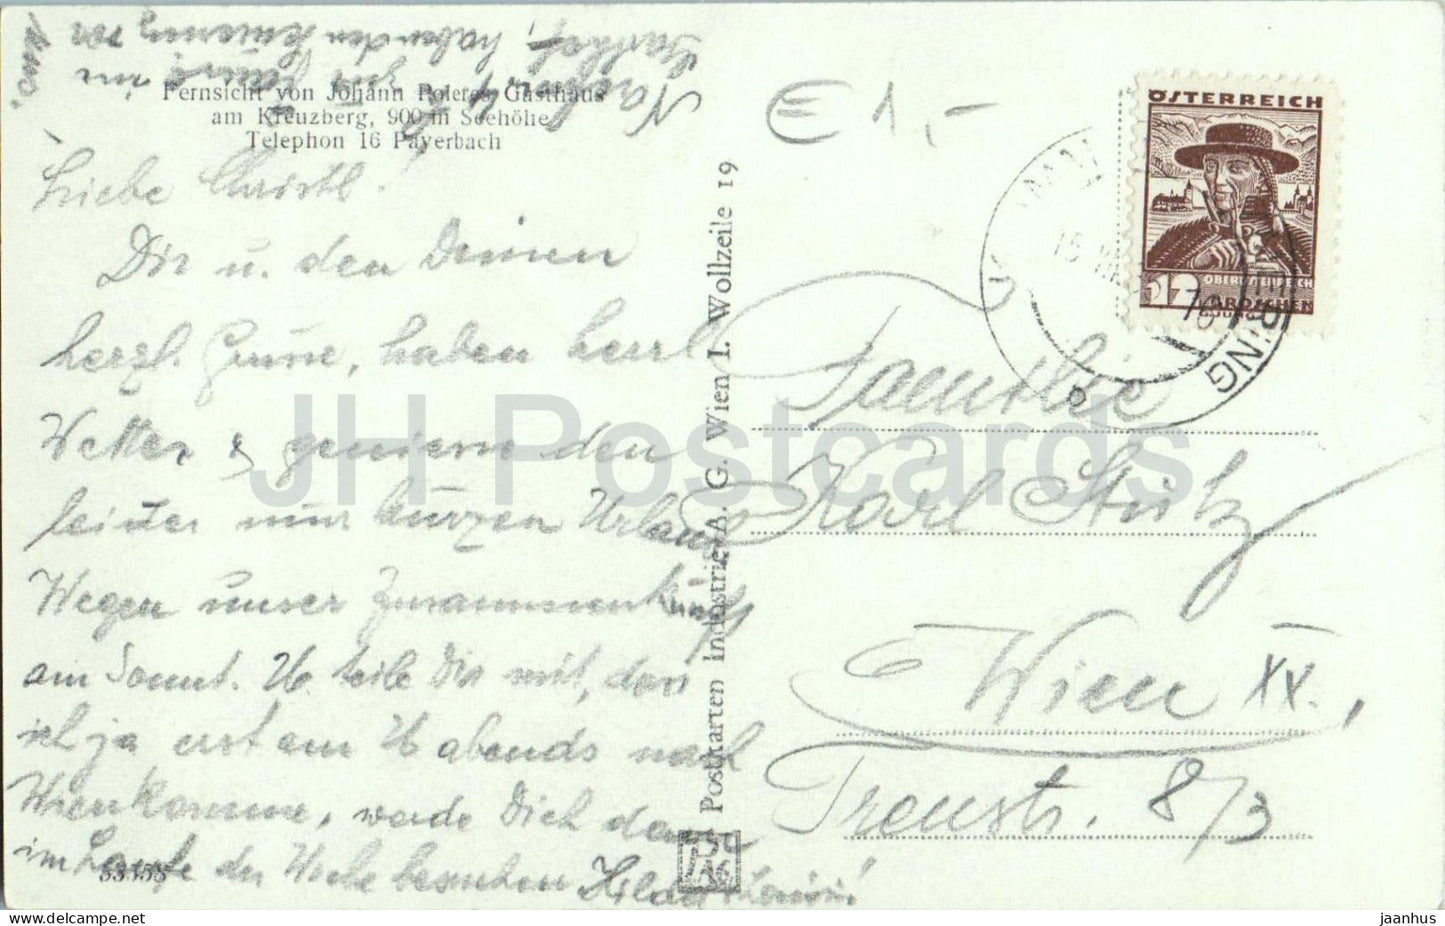 Fernsicht von Johann Poleres Gasthaus
am Kreuzberg, 900 m Seehöhe
Telephon 16 Payerbach
Liebe Christl!
Dir u. den Deinen
herzl. Grüße, haben herrl.
Wetter & genießen den
leider nur kurzen Urlaub
Wegen unser Zusammenkunft
am Sonnt. 16. teile Dir mit, daß
ich ja erst am 16 abends nach
Wien komme, werde Dich dann
im Laufe der Woche besuchen
53158
€ 1,-
ÖSTERREICH
OBERÖSTERREICH
12 GROSCHEN
Familie
Karl Stritz
Wien XX.,
Treustr. 8/3
Postkarten Industrie A. G. Wien I. Wollzeile 19
JH Postcards
jaanhus